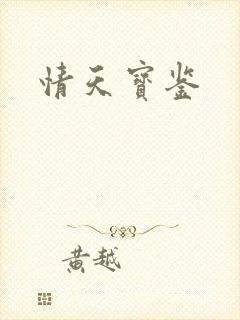 情天寶鉴
黄越